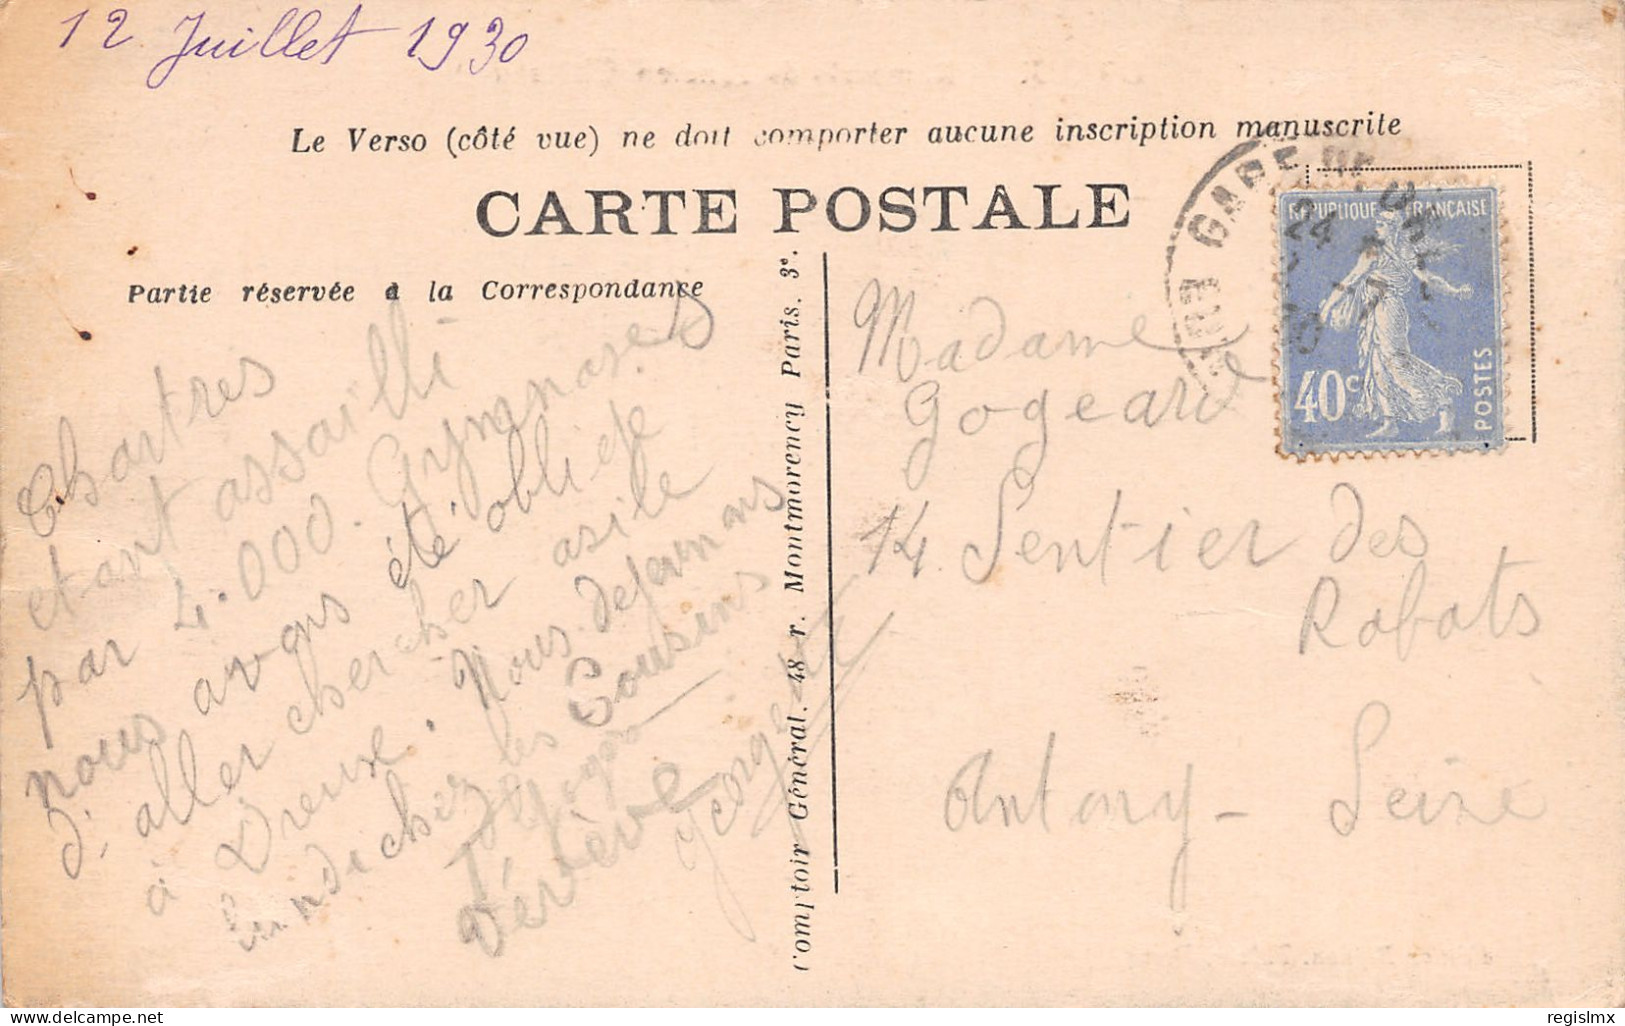 12 Juillet 1930
Le Verso (côté vue) ne doit comporter aucune inscription manuscrite
CARTE POSTALE
Partie réservée à la Correspondance
Chartres
étant assailli
par 4.000. Gymnases
nous avons été obligé
d'aller chercher asile
à Dreux. Nous déjeunons
lundi chez les Cousins
Georgette
Comptoir Général. 48 r. Montmorency Paris. 3e.
GARE
RÉPUBLIQUE FRANÇAISE
24
40c
POSTES
Madame
Gogeard
14 Sentier des
Rabats
Antony - Seine
delcampe.net
regislmx